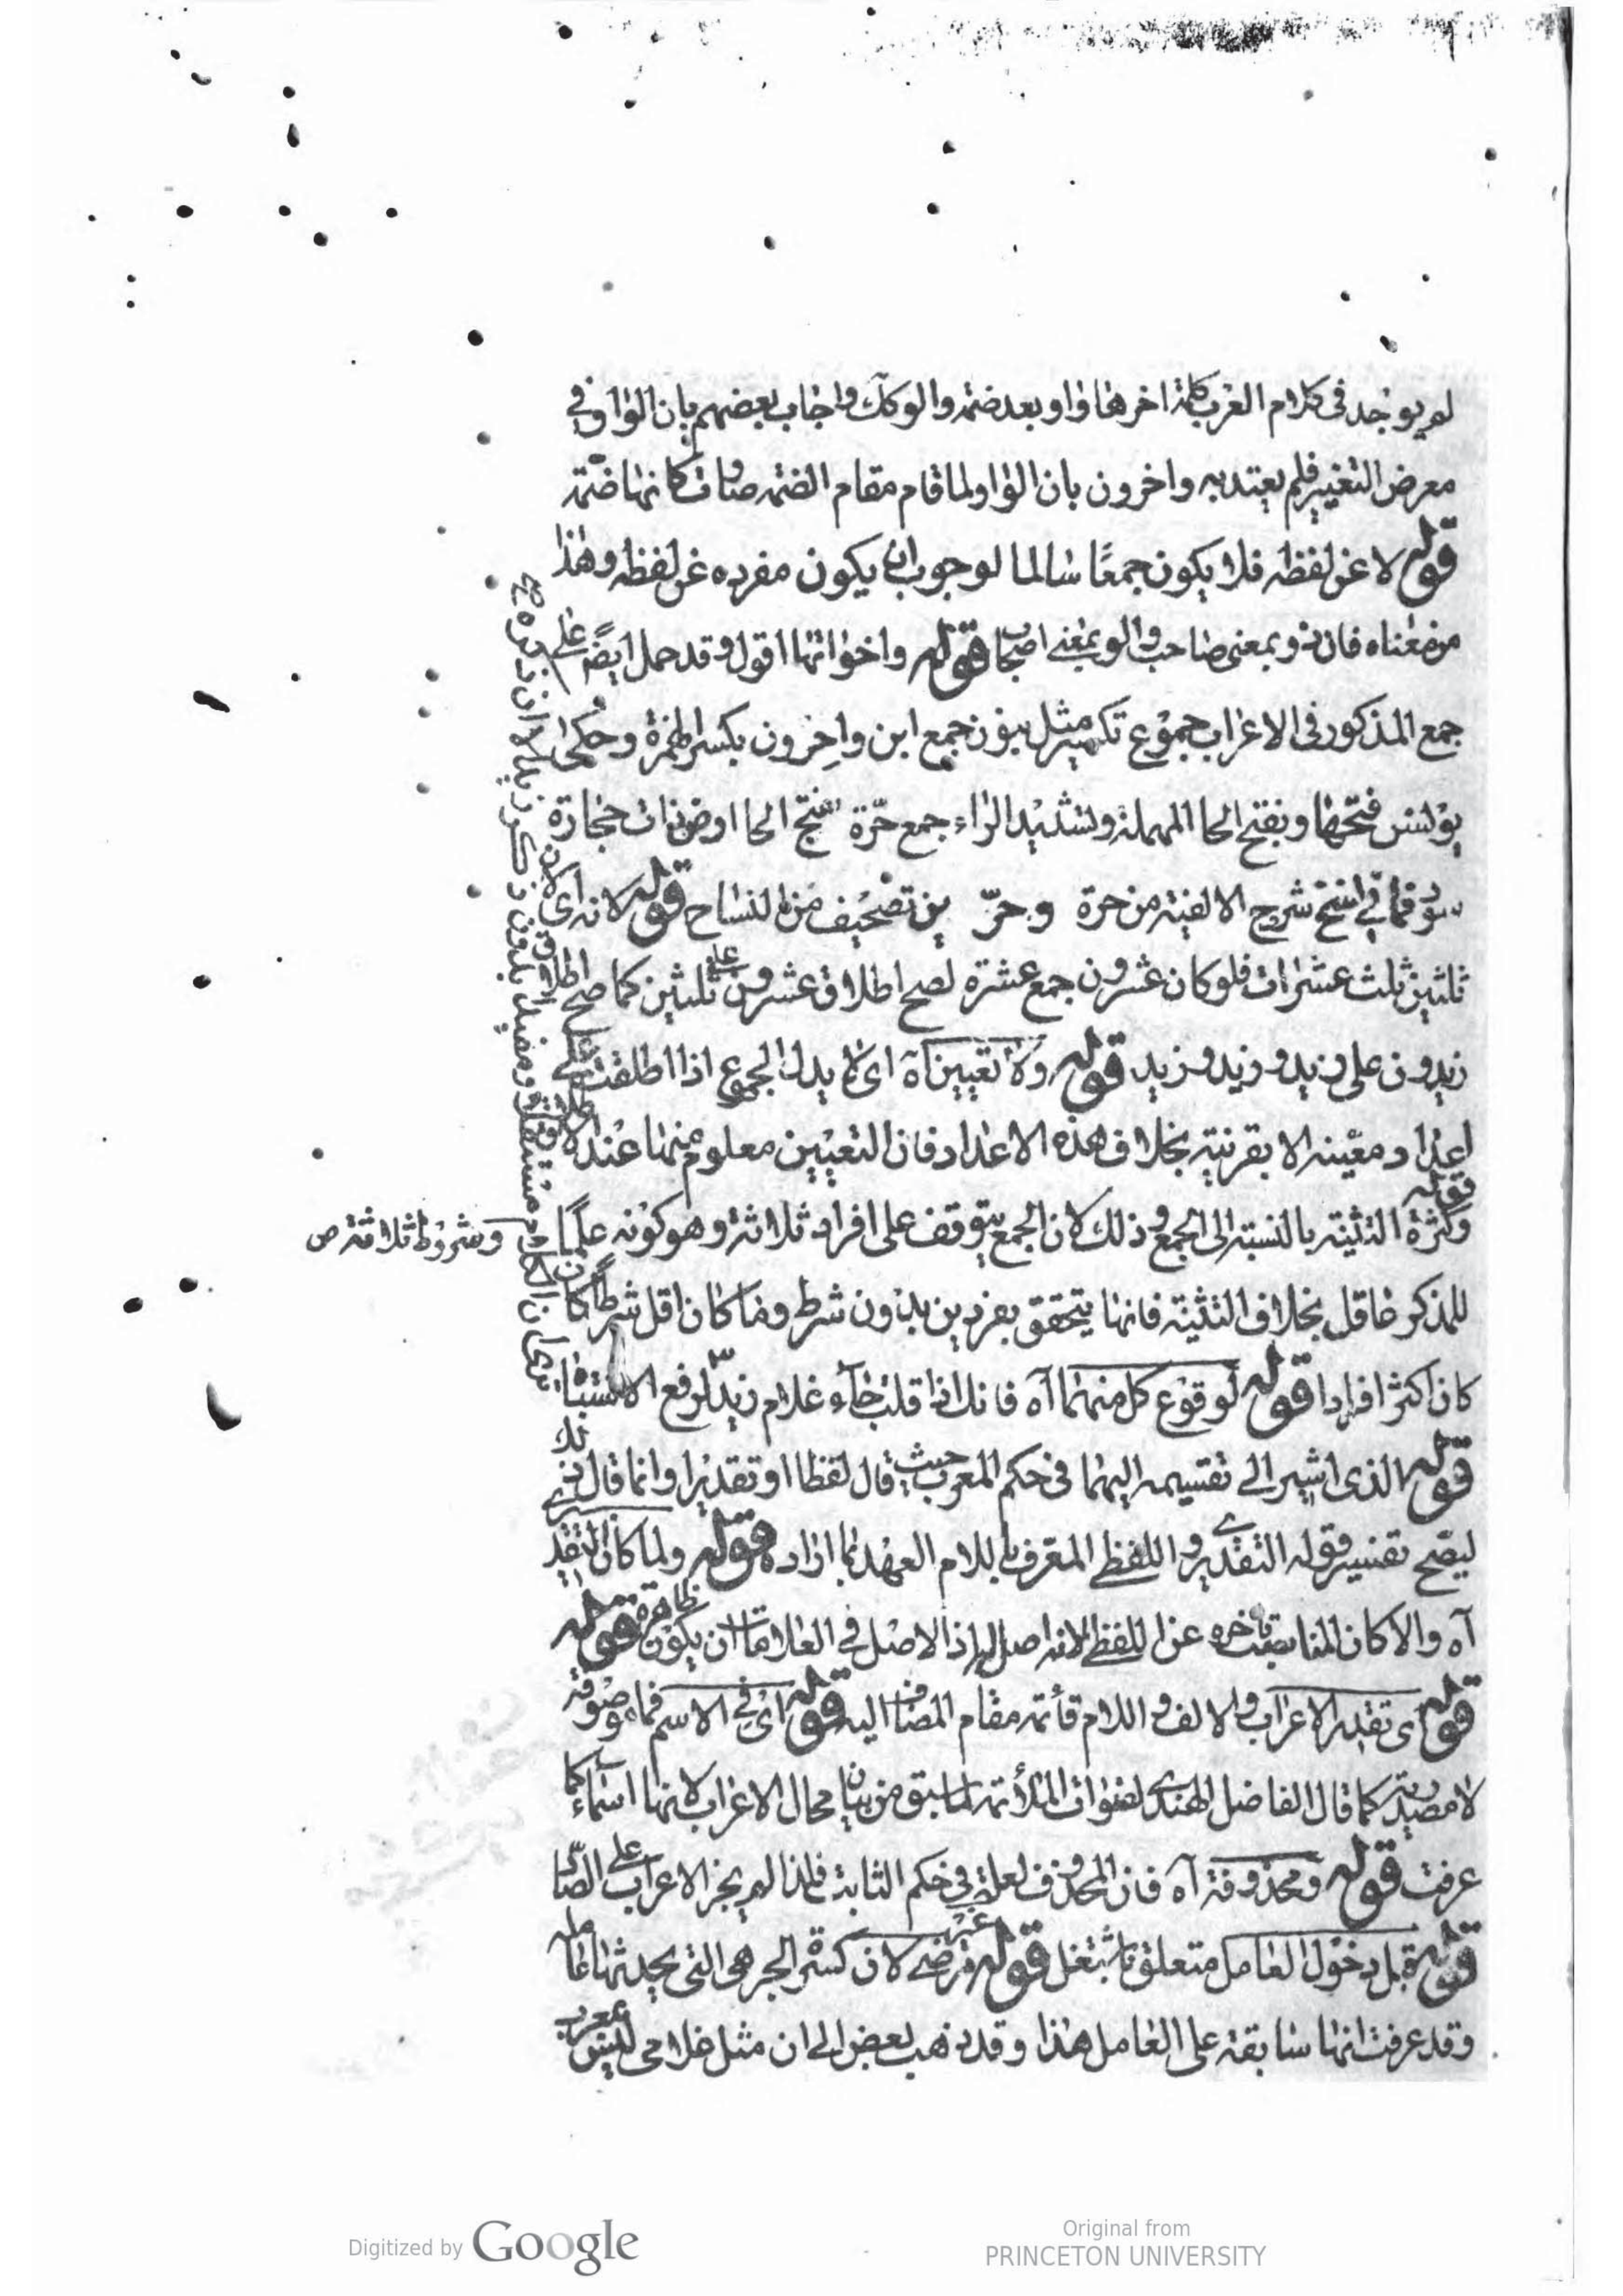 لم يوجد فى كلام العرب كلمة اخرها واو بعد ضمه والو كك واجاب بعضهم بان الواو فى
معرض التغيير فلم يعتد به واخرون بان الواو لما قام مقام الضمه صارت كانها ضمّة
قوله لا عن لفظه فلا يكون جمعًا سالما لوجوب ان يكون مفرده عن لفظه وهذا
من معناه فان ذو بمعنى صاحب والو بمعنى اصحاب قوله واخواتها اقول وقد حمل ايضً على
جمع المذكور فى الاعراب جموع تكسير مثل بنون جمع ابن واِحِرون بكسر الهمزة وحكى
يونس فتحها وبفتح الحا المهملة وتشديد الراء جمع حرّة بفتح الحا ارض ذات حجارة
سود فما فى نسخ شرح الالفية من حرة وحرّ ين تصحيف من النساح قوله لانه اى
ثلثين ثلث عشرات فلو كان عشرون جمع عشرة لصح اطلاق عشرون على ثلثين كما صح اطلاق
زيدون على زيد وزيد وزيد قوله ولا تعيين آه اى لا يدل الجموع اذا اطلقت على
اعداد معيّنه الا بقرنية بخلاف هذه الاعداد فان التعيين معلوم منها عند الاطلاق
قوله وكثرة التثنية بالنسبة الى الجمع وذلك لان الجمع يتوقف على افراد ثلاثة وهو كونه علمًا
وشروط ثلاثة ص
للمذكر عاقل بخلاف التثنية فانها يتحقق بفردين بدون شرط وما كان اقل شرطًا كان
كان اكثر افرادا قوله لوقوع كل منهما آه فانك اذا قلت جآء غلام زيد لرفع الاشتباه
قوله الذى اشير الى تقسيمه اليهما فى حكم المعرب حيث قال لفظا او تقديرا وانما قال ذلك
ليصح تفسير قوله التقديرى واللفظى المعرف باللام العهد بما اراده قوله ولما كان التقديرى
آه والا كان المناسب تاخره عن اللفظى لانه اصل اليه اذ الاصل فى العلامات ان يكون ظاهرة قوله
قوله اى تقدير الاعراب والالف واللام قائمة مقام المضاف اليه قوله اى فى الاسم فما موصوفة
لا مصدرية كما قال الفاضل الهندى لفوات الملائمة لما سبق من بيان محال الاعراب لانها اسماء كما
عرفت قوله ومحذوفة آه فان المحذوف لعلة فى حكم الثابت فلذا لم يجز الاعراب على الصاد
قوله قبل دخول العامل متعلق باشتغل قوله غير مرضى لان كسرة الجر هى التى يحدثها عامله
وقد عرفت انها سابقة على العامل هذا وقد ذهب بعض الى ان مثل غلامى ليس معرب
Digitized by Google
Original from
PRINCETON UNIVERSITY